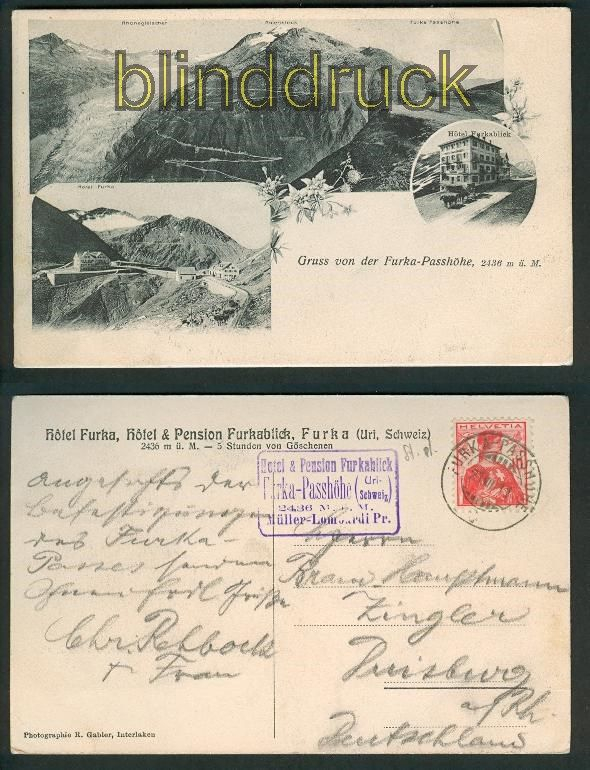 Rhonegletscher Furka Passhöhe
blinddruck
Hôtel Furkablick
Hotel Furka
Gruss von der Furka-Passhöhe, 2436 m ü. M.
Hôtel Furka, Hôtel & Pension Furkablick, Furka (Uri, Schweiz)
2436 m ü. M. — 5 Stunden von Göschenen
HELVETIA
Hotel & Pension Furkablick
Furka-Passhöhe (Uri-Schweiz)
2436 M. ü. M.
Müller-Lombardi Pr.
Angesichts der
Befestigungen
des Furka-
Passes senden
Ihnen Grüße
Chr. Rehbock
+ Frau
Herrn
Hauptmann
Zingler
Duisburg
a/Rh.
Deutschland
Photographie R. Gabler, Interlaken